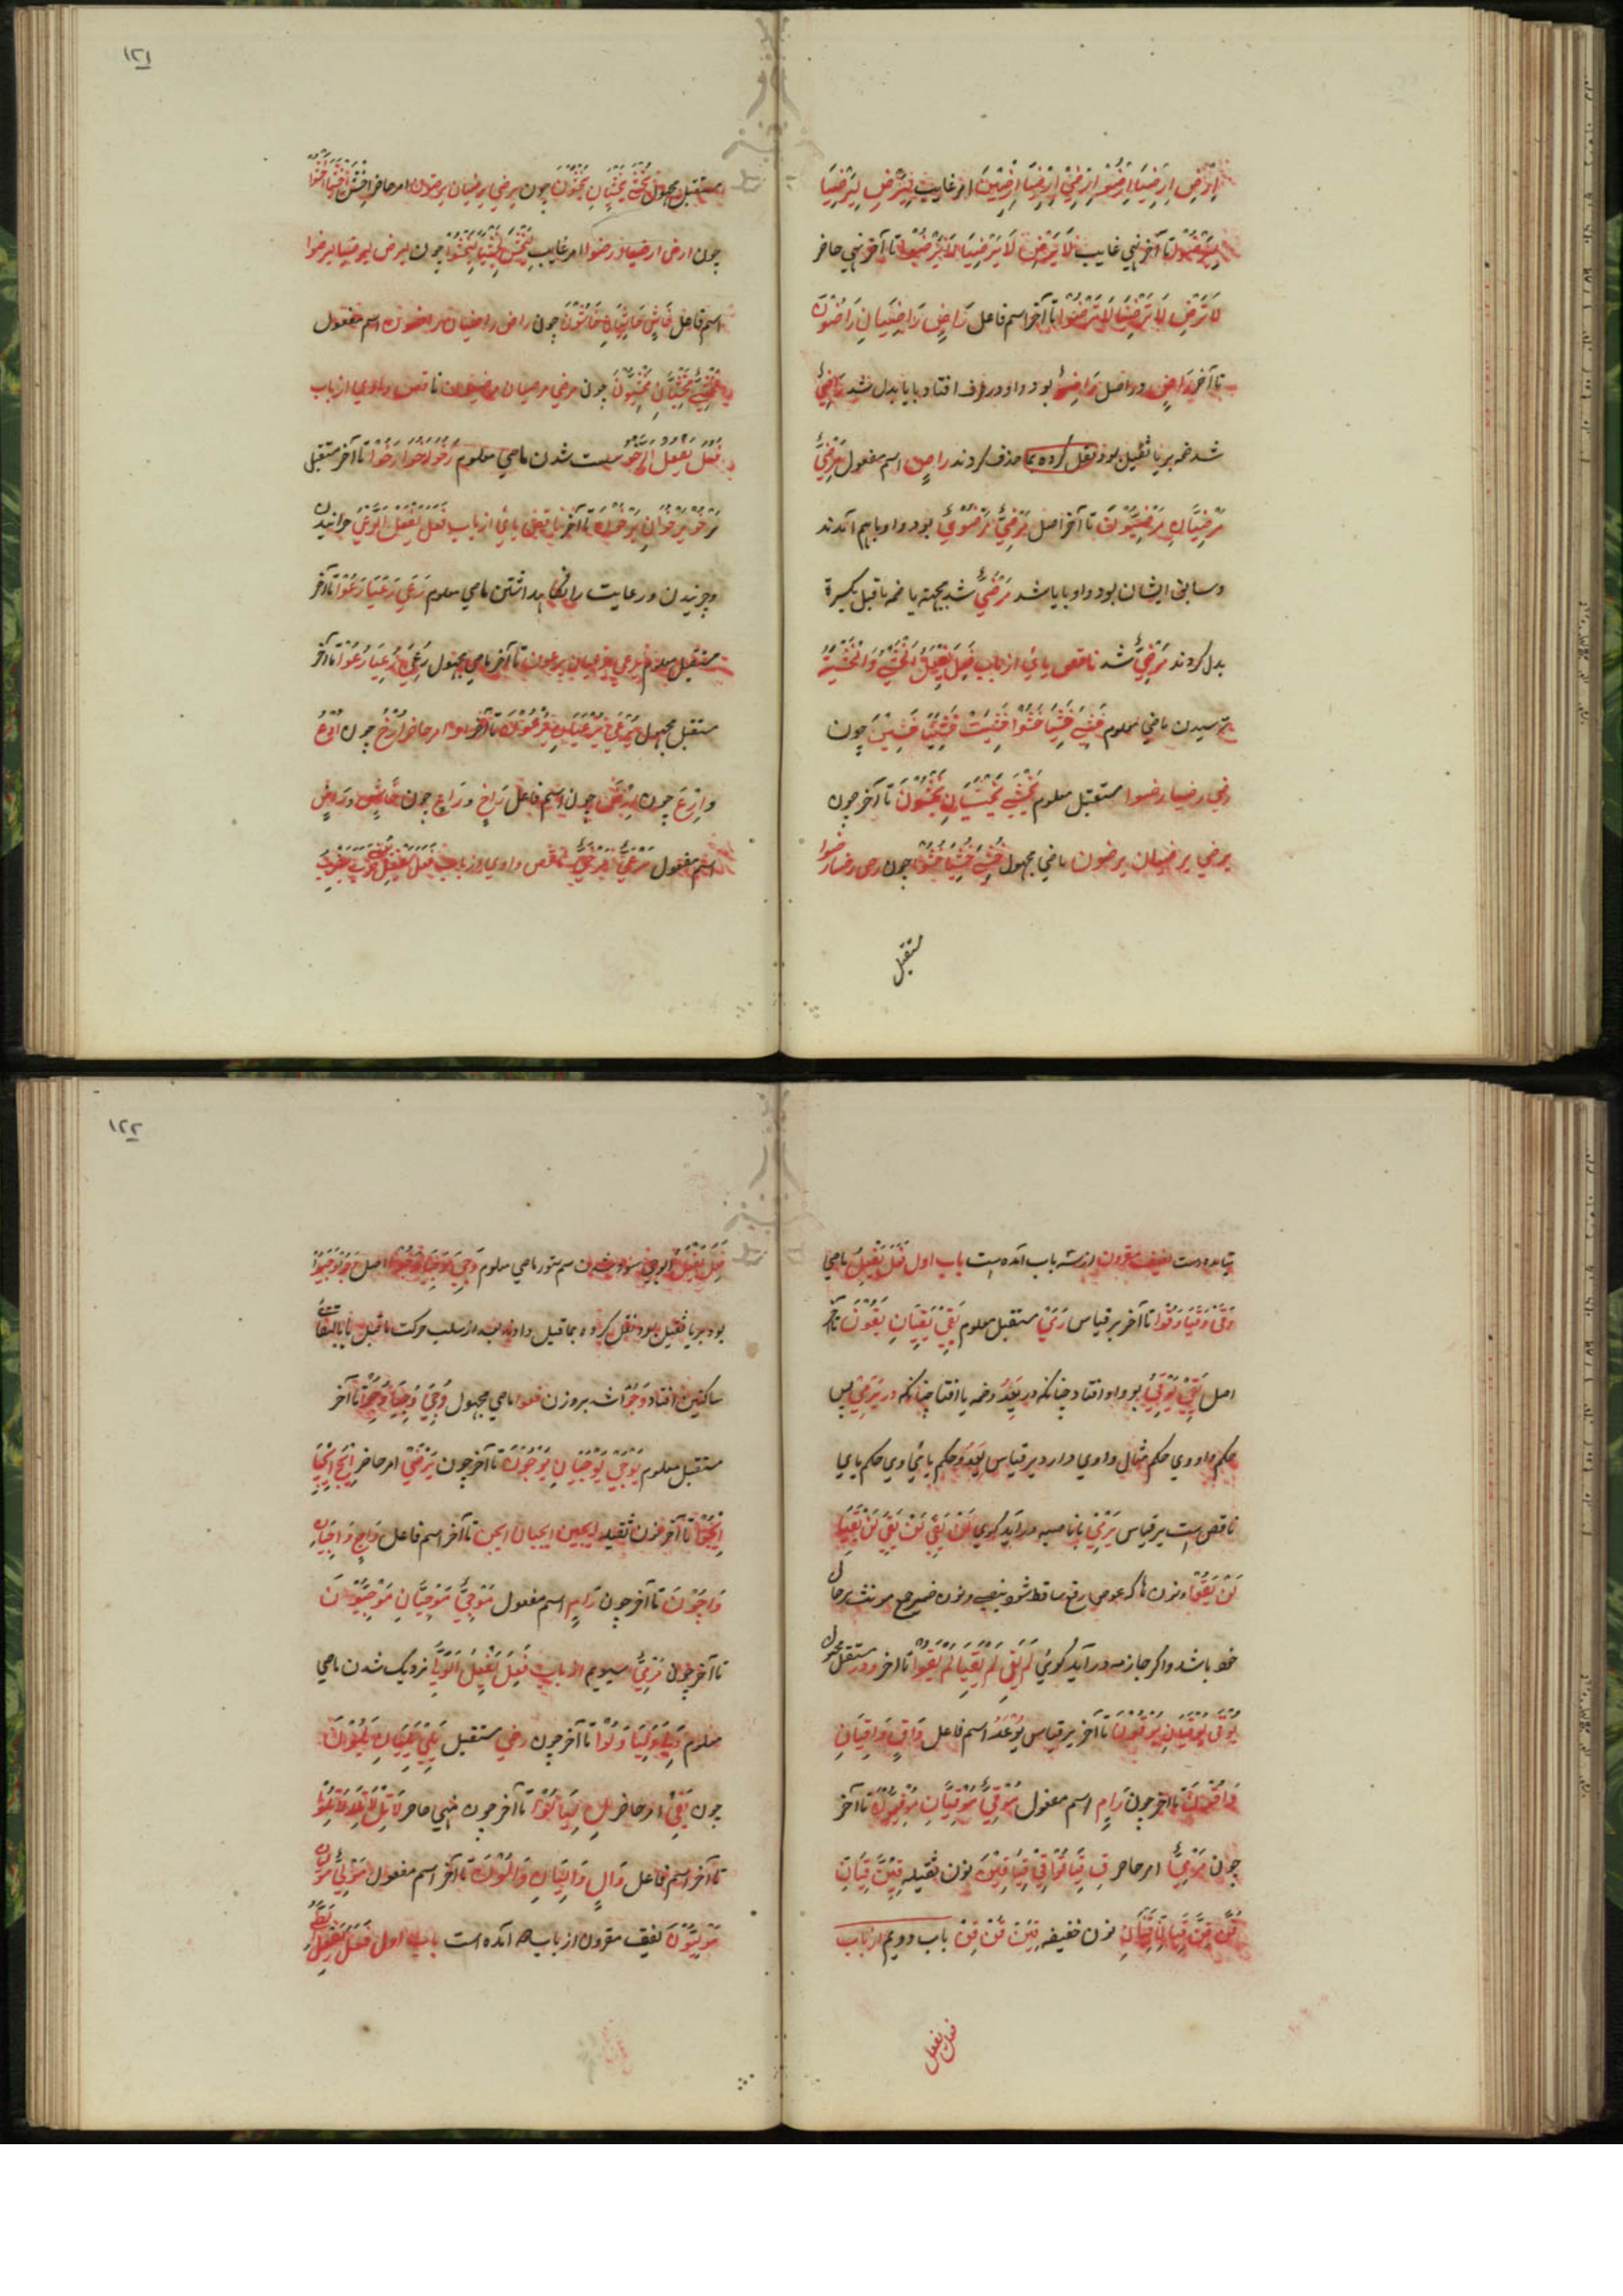 اِرْضَ اِرْضَيَا اِرْضَوْا اِرْضَيْ اِرْضَيَا اِرْضَيْنَ امر غایب لِيَرْضَ لِيَرْضَيَا
لِيَرْضَوْا تا آخر نهي غايب لَا يَرْضَ لَا يَرْضَيَا لَا يَرْضَوْا تا آخر نهي حاضر
لَا تَرْضَ لَا تَرْضَيَا لَا تَرْضَوْا تا آخر اسم فاعل رَاضٍ رَاضِيَانِ رَاضُوْنَ
تا آخر رَاضٍ در اصل رَاضِوٌ بود واو در طرف افتاد با یا بدل شد رَاضِيٌ
شد ضمه بر یا ثقیل بود نقل کرده بما حذف کردند راضٍ اسم مفعول مَرْضِيٌّ
مَرْضِيَّانِ مَرْضِيُّوْنَ تا آخر اصل مَرْضِيٌّ مَرْضُوْيٌ بود واو یا بهم آمدند
و سابق ایشان بود واو با یا شد مَرْضُيٌّ شد بجهة یا ضمه ما قبل بکسرة
بدل کردند مَرْضِيٌّ شد ناقص یائی از باب فَعِلَ يَفْعَلُ اَلْخَشْيُ وَالْخَشْيَةُ
ترسیدن ماضي معلوم خَشِيَ خَشِيَا خَشُوْا خَشِيَتْ خَشِيَتَا خَشِيْنَ چون
رضي رضيا رضوا مستقبل معلوم يَخْشَى يَخْشَيَانِ يَخْشَوْنَ تا آخر چون
يرضي يرضيان يرضون ماضي مجهول خُشِيَ خُشِيَا خُشُوْا چون رضي رضيا رضوا
مستقبل
١٢١
مستقبل مجهول يُخْشَى يُخْشَيَانِ يُخْشَوْنَ چون يرضي يرضيان يرضون امر حاضر اِخْشَ اِخْشَيَا اِخْشَوْا
چون ارض ارضيا ارضوا امر غایب لِيَخْشَ لِيَخْشَيَا لِيَخْشَوْا چون ليرض ليرضيا ليرضوا
اسم فاعل خَاشٍ خَاشِيَانِ خَاشُوْنَ چون راض راضيان راضون اسم مفعول
مَخْشِيٌّ مَخْشِيَّانِ مَخْشِيُّوْنَ چون مرضي مرضيان مرضيون ناقص واوي از باب
فَعُلَ يَفْعُلُ الرَّخْوُ سست شدن ماضي معلوم رَخُوَ رَخُوَا رَخُوْا تا آخر مستقبل
يَرْخُوْ يَرْخُوَانِ يَرْخُوْنَ تا آخر ناقص یائي از باب فَعَلَ يَفْعَلُ اَلرَّعْيُ چرانیدن
و چریدن و رعایت را نگاه داشتن ماضي معلوم رَعَى رَعَيَا رَعَوْا تا آخر
مستقبل معلوم يرعي يرعيان يرعون تا آخر ماضي مجهول رُعِيَ رُعِيَا رُعُوْا تا آخر
مستقبل مجهول يُرْعَى يُرْعَيَانِ يُرْعَوْنَ تا آخر امر حاضر اُرْخُ چون اُدْعُ
و اِرْعَ چون اِرْضَ چون اسم فاعل رَاخٍ و رَاعٍ چون خَاشٍ و رَاضٍ
اسم مفعول مَرْعِيٌّ مَرْخِيٌّ ناقص واوي از باب فَعَلَ
تیامده است لفیف مفروق از سه باب آمده است باب اول فَعَلَ يَفْعِلُ ماضي
وَقَى وَقَيَا وَقَوْا تا آخر بر قیاس رَمَى مستقبل معلوم يَقِيْ يَقِيَانِ يَقُوْنَ تا آخر
اصل يَقِيْ يَوْقِيُ بود واو افتاد چنانکه در يَعِدُ و ضمه یا افتاد چنانکه در يَرْمِيْ پس
حکم واو وي حکم مثال واوي دارد بر قیاس يَعِدُ و حکم یائي وي حکم یای
ناقص است بر قیاس يَرْمِيْ با ناصبه در آید گوي لَنْ يَقِيَ لَنْ يَقِيَا
لَنْ يَقُوْا و نون ها که عوض رفع ساقط شود بنصب و نون ضمیر جمع مونث بر حال
خود باشد و اگر جازمه در آید گوئي لَمْ يَقِ لَمْ يَقِيَا لَمْ يَقُوْا تا اخر و در مستقبل مجهول
يُوْقَى يُوْقَيَانِ يُوْقَوْنَ تا آخر بر قیاس يُوْعَدُ اسم فاعل وَاقٍ وَاقِيَانِ
وَاقُوْنَ تا آخر چون رَامٍ اسم مفعول مَوْقِيٌّ مَوْقِيَّانِ مَوْقِيُّوْنَ تا آخر
چون مَرْمِيٌّ امر حاضر قِ قِيَا قُوْا قِيْ قِيَا قِيْنَ نون ثقیله قِيَنَّ قِيَانِّ
قُنَّ قِنَّ قِيَانِّ قِيْنَانِّ نون خفیفه قِيَنْ قُنْ قِنْ باب دویم از باب
فعل يفعل
١٢٢
فَعِلَ يَفْعَلُ الوجي سوده شدن سم ستور ماضي معلوم وَجِيَ وَجِيَا وَجُوْا اصل وَجُوْا وَجِيُوْا
بود بر یا ثقیل بود نقل کرده بماقبل دادند بعد از سلب حرکت ماقبل یا بالتقاء
ساکنین افتاد وَجُوْا شد بر وزن فعوا ماضي مجهول وُجِيَ وُجِيَا وُجُوْا تا آخر
مستقبل معلوم يَوْجَى يَوْجَيَانِ يَوْجَوْنَ تا آخر چون يَرْضَى امر حاضر اِيْجَ اِيْجَيَا
اِيْجَوْا تا آخر نون ثقیله ايجين ايجيان ايجن تا آخر اسم فاعل وَاجٍ وَاجِيَانِ
وَاجُوْنَ تا آخر چون رَامٍ اسم مفعول مَوْجِيٌّ مَوْجِيَّانِ مَوْجِيُّوْنَ
تا آخر چون مَرْمِيٌّ سیوم از باب فَعِلَ يَفْعِلُ اَلْوَلْيُ نزدیک شدن ماضي
معلوم وَلِيَ وَلِيَا وَلُوْا تا آخر چون رضي مستقبل يَلِيْ يَلِيَانِ يَلُوْنَ
چون يَقِيْ امر حاضر لِ لِيَا لُوْا تا آخر چون نهي حاضر لَا تَلِ لَا تَلِيَا لَا تَلُوْا
تا آخر اسم فاعل وَالٍ وَالِيَانِ وَالُوْنَ تا آخر اسم مفعول مَوْلِيٌّ مَوْلِيَّانِ
مَوْلِيُّوْنَ لفیف مقرون از باب آمده است باب اول فَعَلَ يَفْعِلُ